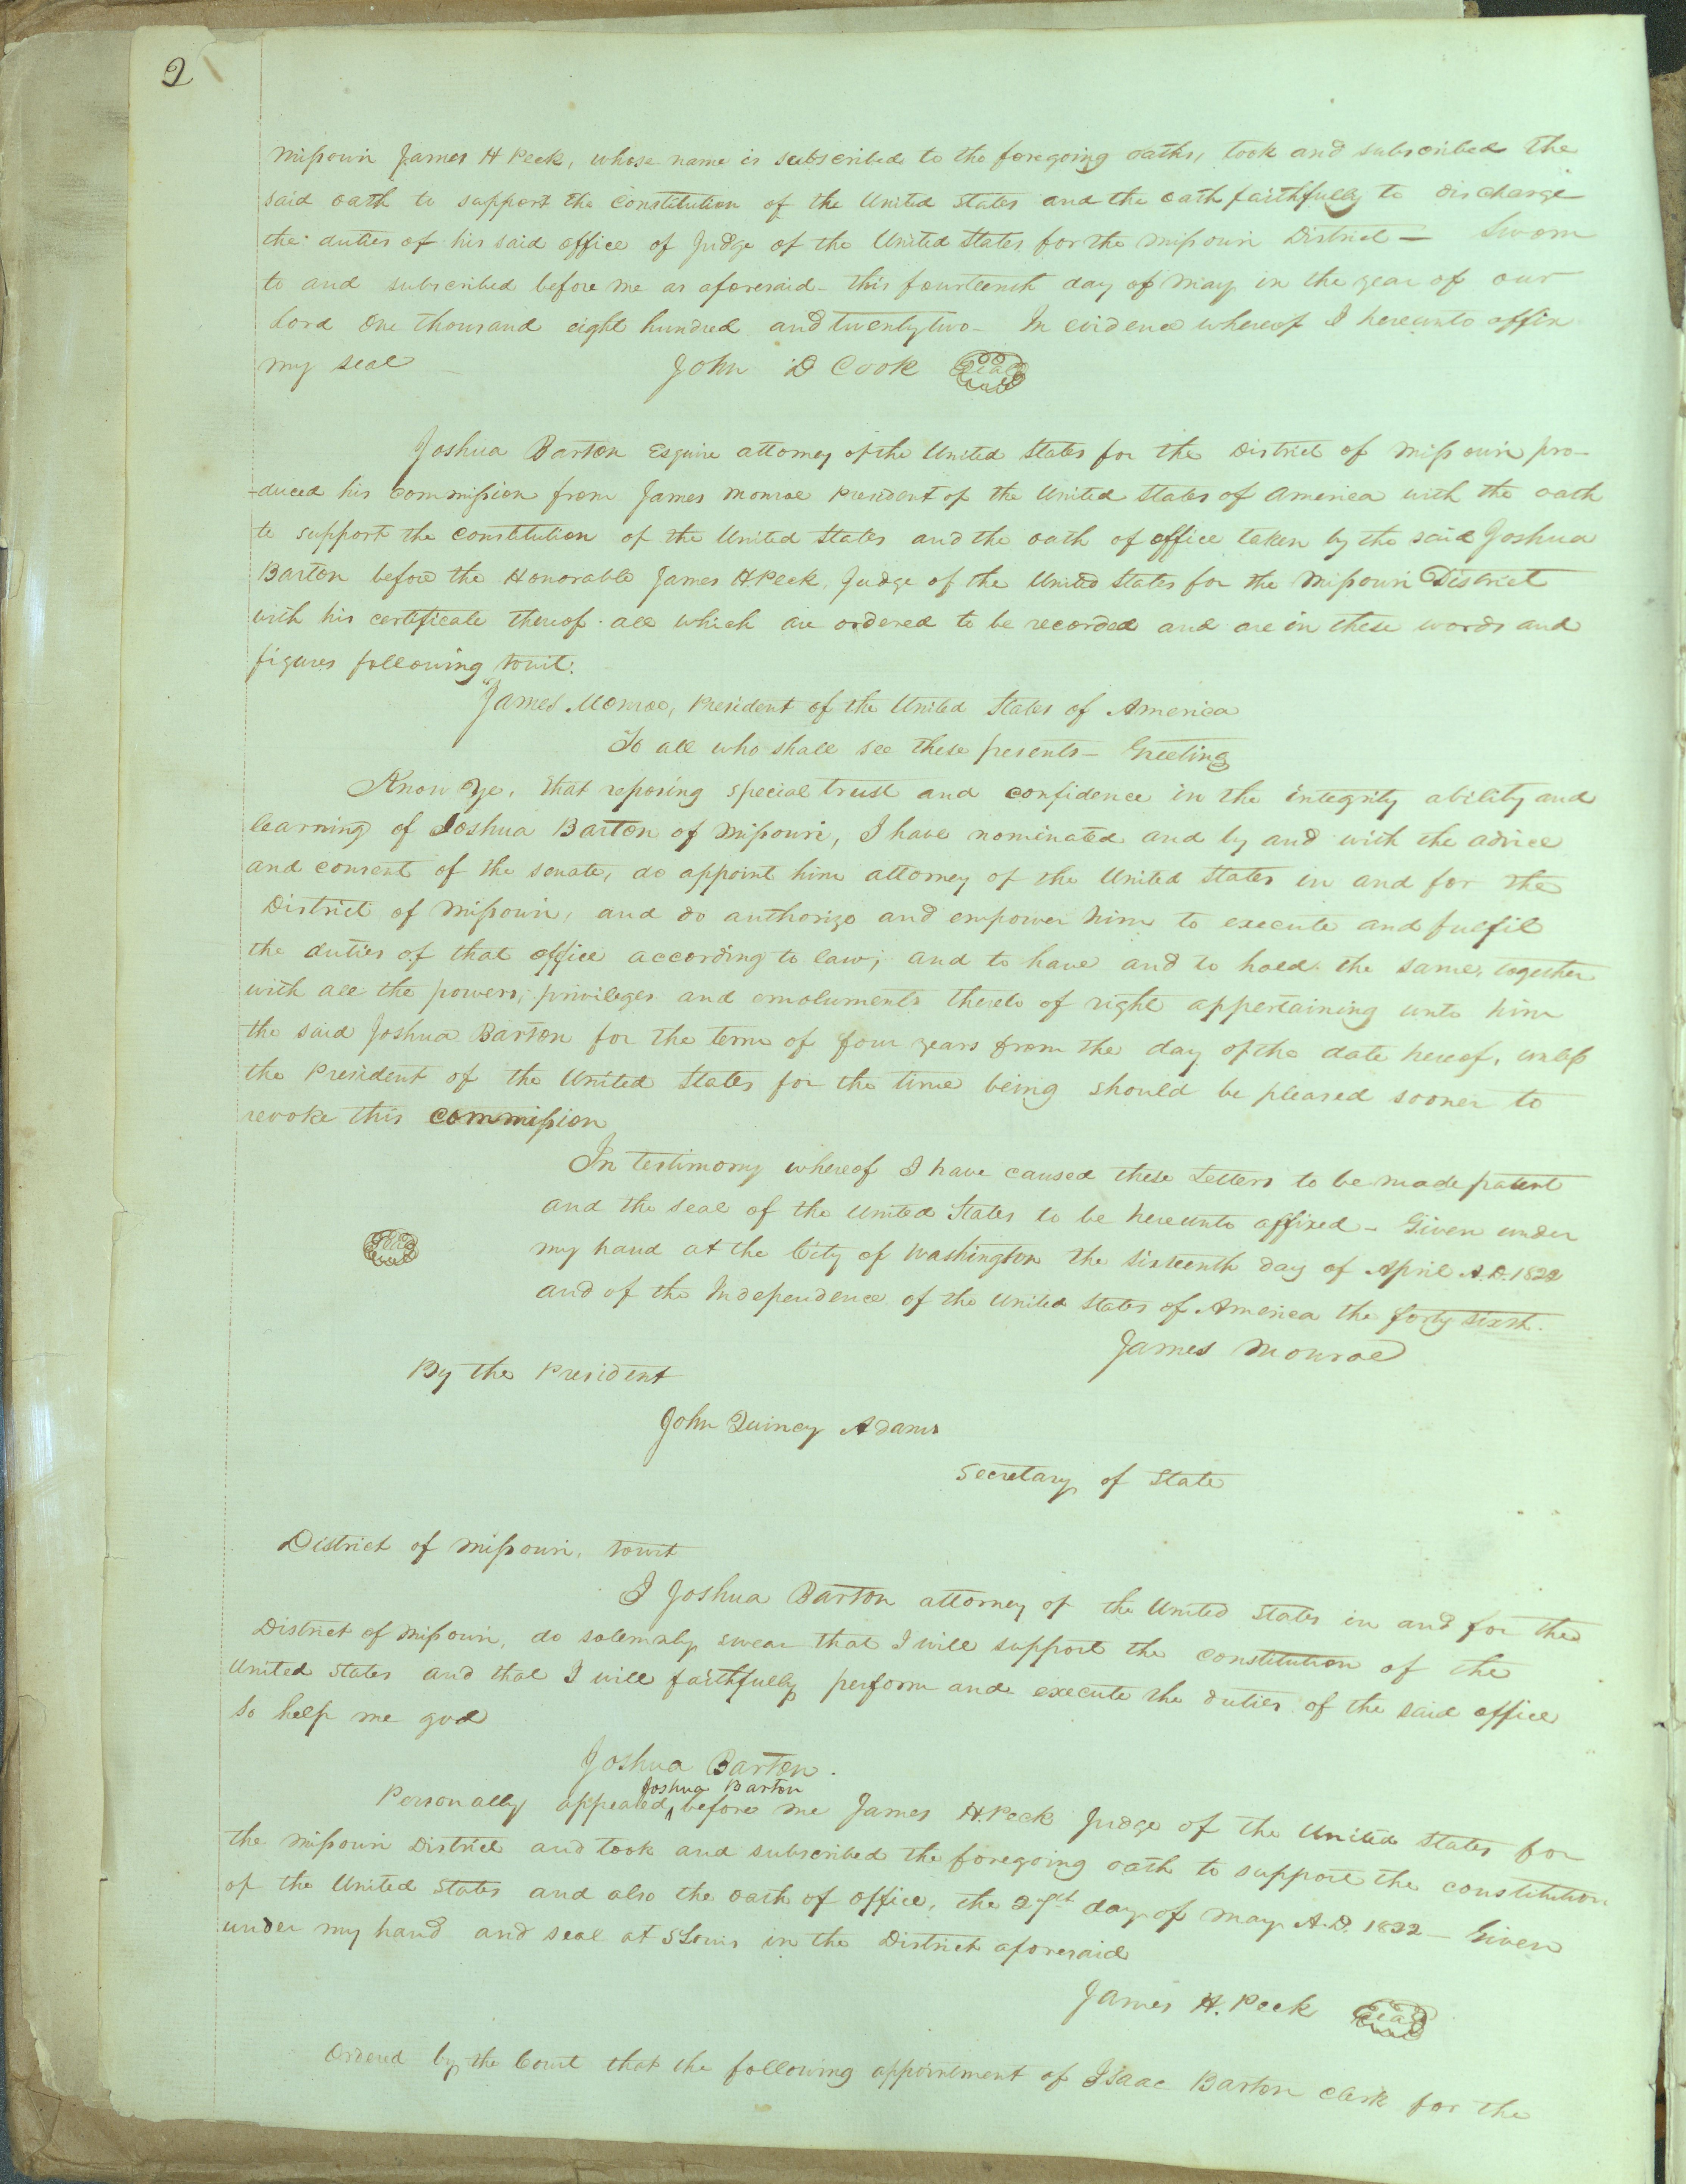 2
Missouri James H Peck, whose name is subscribed to the foregoing oaths, took and subscribed the
said oath to support the Constitution of the United States and the oath faithfully to discharge
the duties of his said office of Judge of the United States, for the Missouri District — Sworn
to and subscribed before me as aforesaid – this fourteenth day of May in the year of our
Lord One thousand eight hundred and twenty two – In evidence whereof I hereunto affix
my seal John D Cook Seal
Joshua Barton Esquire attorney of the United States for the District of Missouri pro-
-duced his commission from James Monroe President of the United States of America with the oath
to support the constitution of the United States and the oath of office taken by the said Joshua
Barton before the Honorable James H. Peck, Judge of the United States for the Missouri District
with his certificate thereof all which are ordered to be recorded and are in these words and
figures following towit:
"James Monroe, President of the United States of America
To all who shall see these presents – Greeting
Know Ye, that reposing special trust and confidence in the integrity ability and
learning of Joshua Barton of Missouri, I have nominated and by and with the advice
and consent of the senate, do appoint him attorney of the United States in and for the
District of Missouri, and do authorize and empower him to execute and fulfil
the duties of that office according to law; and to have and to hold the same, together
with all the powers, privileges and emoluments thereto of right appertaining unto him
the said Joshua Barton for the term of four years from the day of the date hereof, unless
the President of the United States for the time being should be pleased sooner to
revoke this commission
In testimony whereof I have caused these Letters to be made patent
and the seal of the United States to be hereunto affixed – Given under
Seal my hand at the City of Washington the sixteenth day of April A.D. 1822
and of the Independence of the United States of America the forty sixth.
James Monroe
By the President
John Quincy Adams
Secretary of State
District of Missouri, towit
I Joshua Barton attorney of the United States in and for the
District of Missouri, do solemnly swear that I will support the constitution of the
United States and that I will faithfully perform and execute the duties of the said office
So help me god
Joshua Barton.
Personally appeared Joshua Barton before me James H. Peck Judge of the United States for
the Missouri District and took and subscribed the foregoing oath to support the constitution
of the United States and also the oath of office, the 27th day of May A.D. 1822 – Given
under my hand and seal at St Louis in the District aforesaid
James H. Peck Seal
Ordered by the Court that the following appointment of Isaac Barton clerk for the